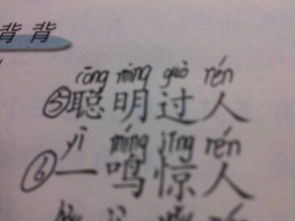 背 背
cōng míng guò rén
⑤聪明过人
yì míng jīng rén
⑥一鸣惊人